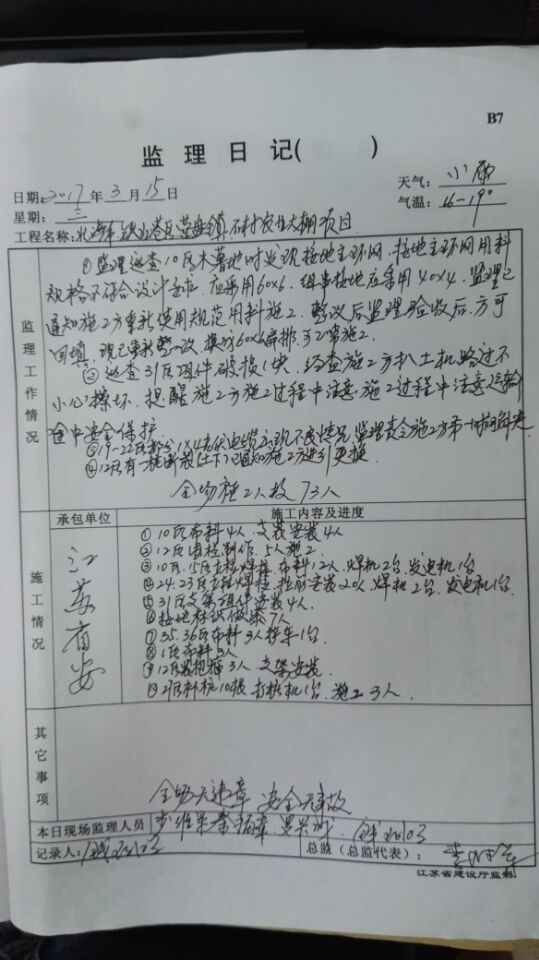 B7
监理日记( )
日期:2017年3月15日
天气:小雨
星期:三
气温:16-19°
工程名称:北海市铁山港区营盘镇石村农业大棚项目
监理工作情况
①监理巡查10区木薯地时发现接地主环网,接地主环网用料
规格不符合设计要求,应采用60×6,组串接地应采用40×4,监理已
通知施工方重新使用规范用料施工,整改后监理验收后,方可
回填,现已重新整改,换好60×6扁排,正常施工
②巡查31区组件破损1块,经查施工方扒土机路过不
小心擦坏,提醒施工方施工过程中注意施工过程中注意运输
途中安全保护
③19-22区部分1×4光伏电缆出现不良情况,监理责令施工方第一时间解决
④12区有一桩断裂(土下)已通知施工方进行更换
全场施工人数73人
承包单位
施工内容及进度
施工情况
江苏省安
①10区布料4人,支架安装4人
②12区 制作,5人施工
③10区,15区立柱焊接,布料12人,焊机2台,发电机1台
④24.23区立柱焊接,拉 安装20人,焊机2台,发电机1台
⑤31区支架组件安装4人
⑥接地标识 7人
⑦35.36区布料3人 车1台
⑧1区布料3人
⑨12区 3人 支架安装
⑩2区斜桩10根 打桩机1台,施工3人
其它事项
全场无违章 安全无事故
本日现场监理人员
记录人:
总监(总监代表):
江苏省建设厅监制